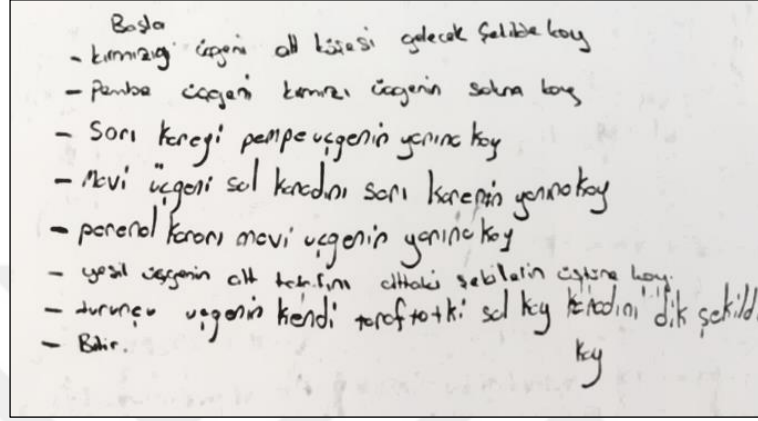 Başla
- kırmızıyı üçgeni alt köşesi gelecek şekilde koy
- Pembe üçgeni kırmızı üçgenin soluna koy
- Sarı kareyi pempe üçgenin yanına koy
- Mavi üçgeni sol kenadını sarı karenin yanına koy
- parenal kararı mavi üçgenin yanına koy
- yeşil üçgenin alt tarafını alttaki şekilerin üstüne koy.
- turuncu üçgenin kendi taraftatki sol kenadını dik şekild
koy
- Bitir.